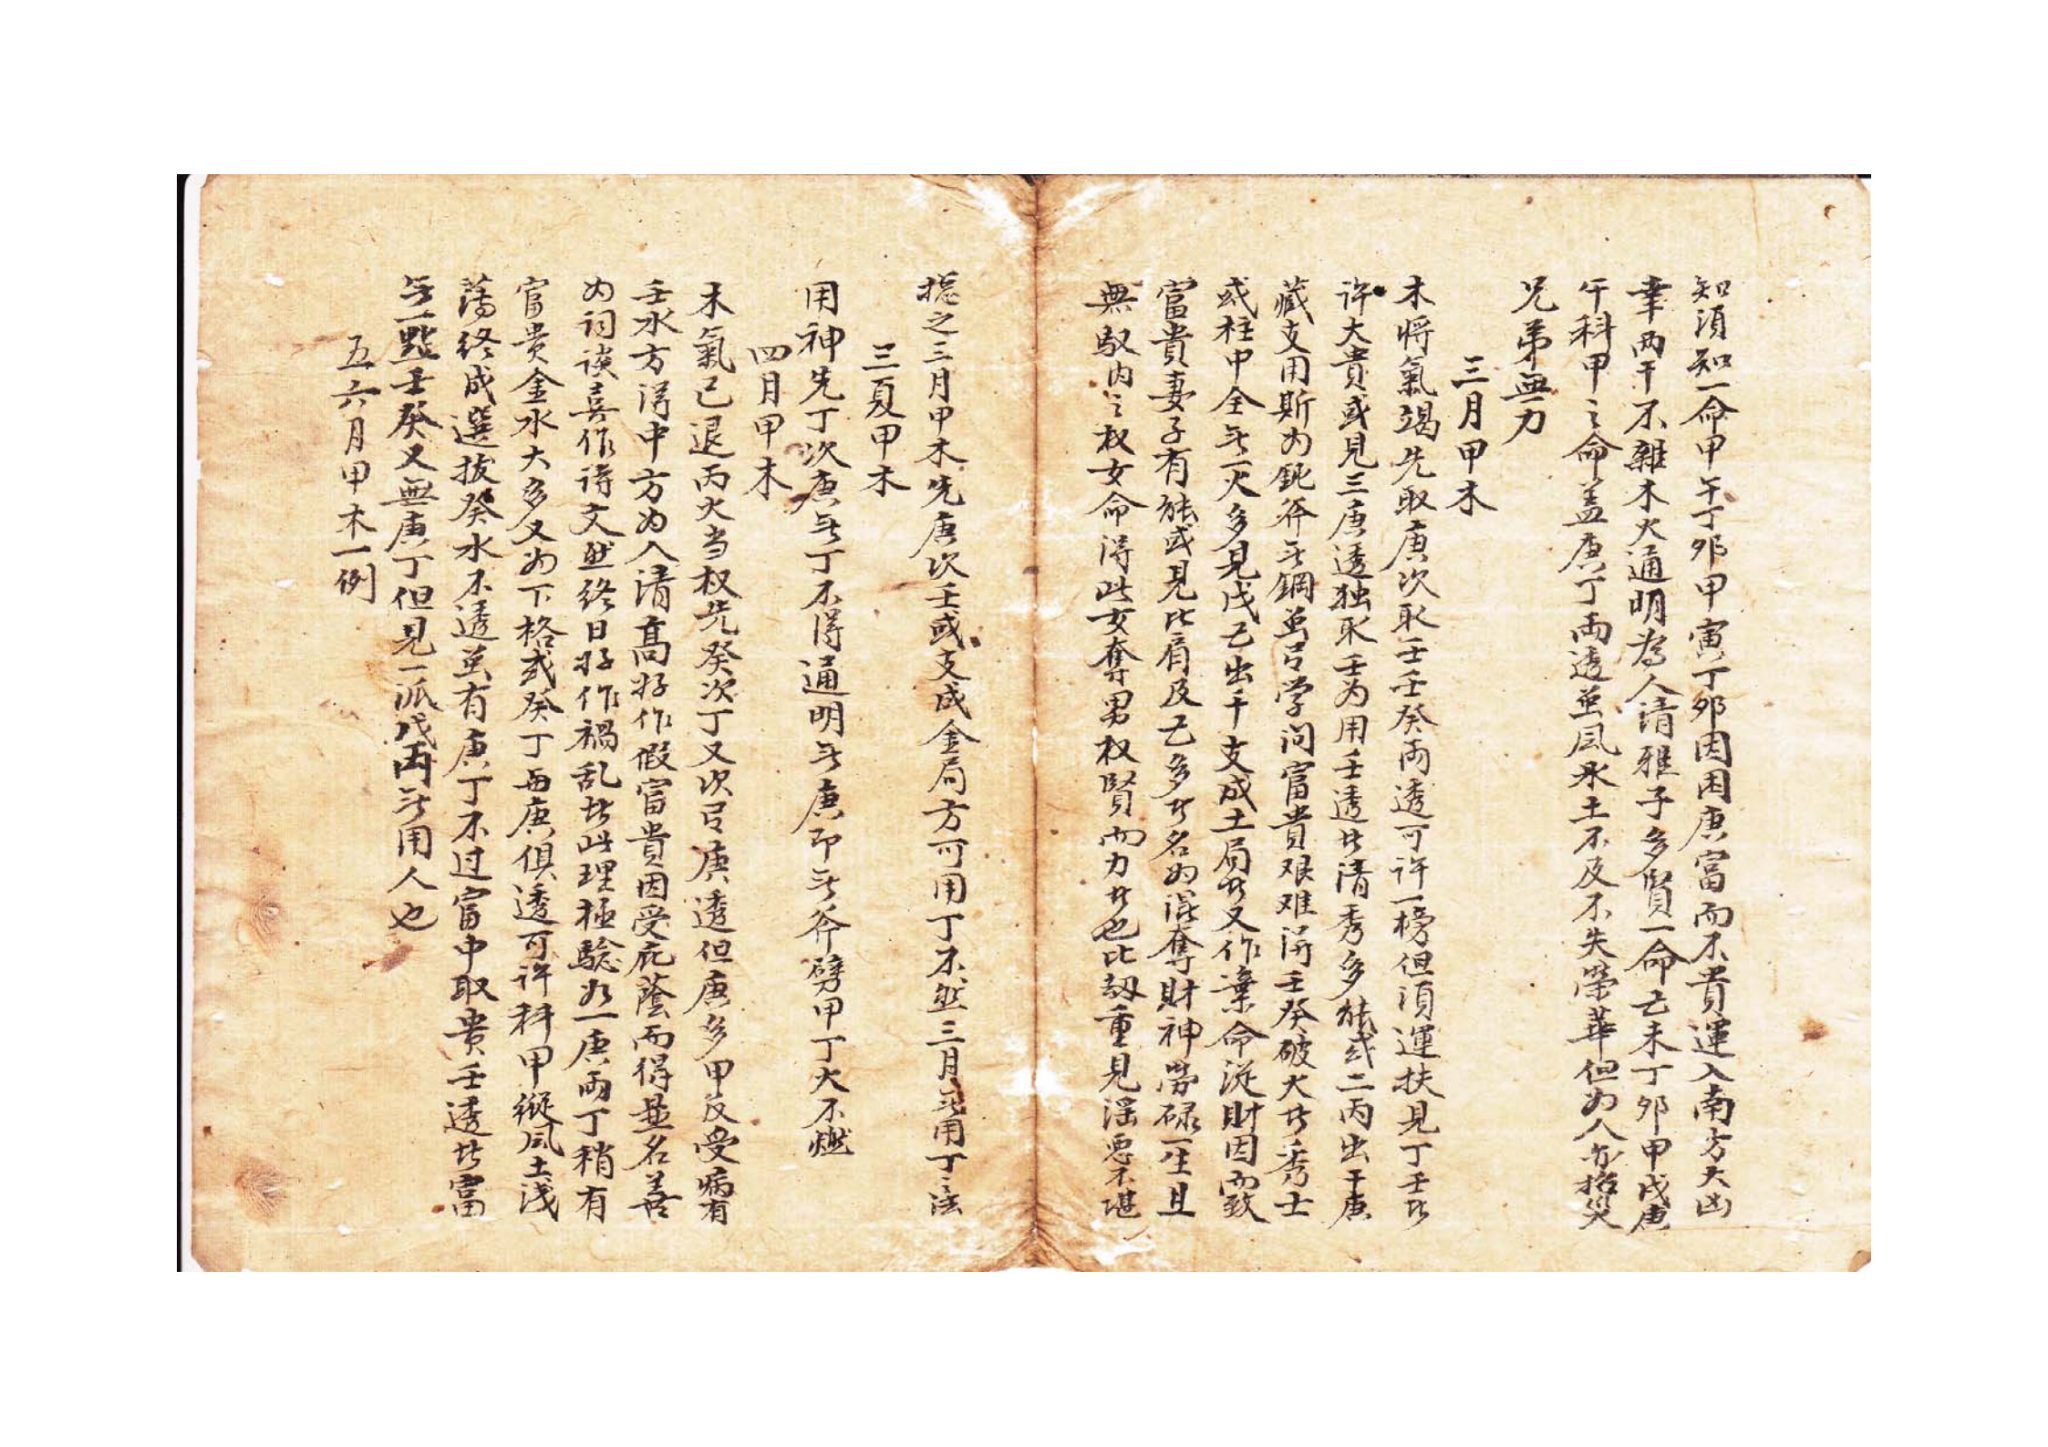 知須知一命甲午丁卯甲寅丁卯因困庚富而不貴運入南方大凶
幸两干不雜木火通明為人清雅子多賢一命己未丁卯甲戌庚
午科甲之命盖庚丁両透虽風水土不及不失榮華但为人亦招災
兄弟無力
三月甲木
木將氣竭先取庚次取壬壬癸両透可许一榜但須運扶見丁壬
许大貴或見三庚透独取壬为用壬透清秀多能或二丙出干庚
藏支用斯为鈍斧无鋼虽学问富貴艰难得壬癸破大秀士
或柱中全无一火多見戊己出干支成土局又作棄命從財因而致
富貴妻子有能或見比肩及己多名为混奪財神勞碌一生且
無馭内之权女命得此女奪男权賢而力也比刼重見淫悪不堪
揔之三月甲木先庚次壬或支成金局方可用丁不然三月无用丁之法
三夏甲木
用神先丁次庚无丁不得通明无庚即无斧劈甲丁大不燃
四月甲木
木氣已退丙火当权先癸次丁又次庚透但庚多甲反受病有
壬水方得中方为人清高好作假富貴因受庇蔭而得显名善
为词谈喜作詩文然终日好作禍乱此理極驗如一庚両丁稍有
富贵金水大多又为下格或癸丁与庚俱透可许科甲縱風土淺
薄终成選拔癸水不透虽有庚丁不过富中取贵壬透富
无一點壬癸又無庚丁但見一派戊丙无用人也
五六月甲木一例